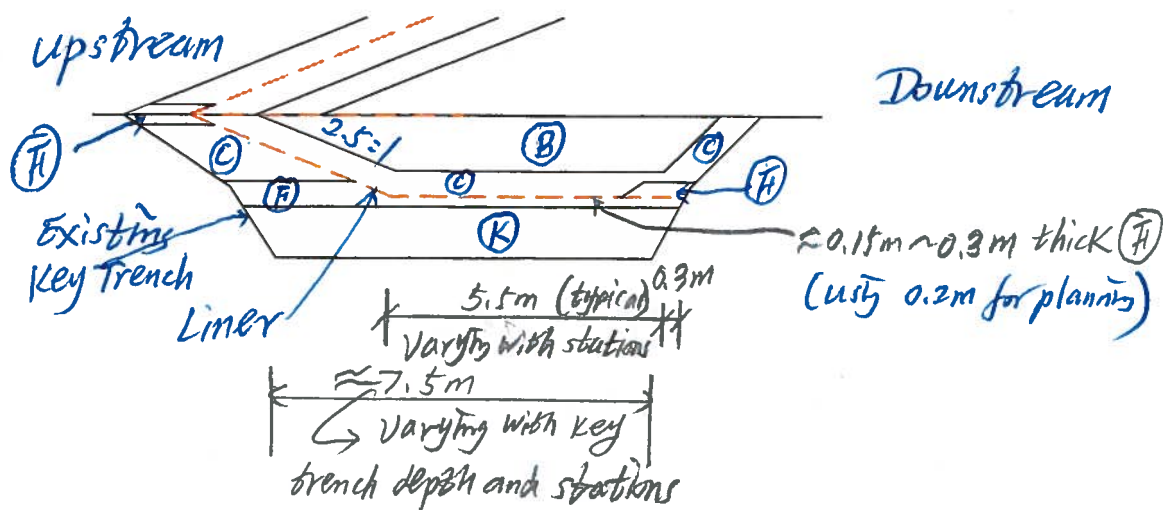 Upstream
Downstream
2.5:1
B
C
C
C
F̄
F̄
F
K
Existing
Key Trench
Liner
≈0.15m~0.3m thick F̄
(Usīy 0.2m for plannīy)
0.3m
5.5m (typical)
Varyīy with stations
≈7.5m
Varyīng with key
trench depth and stations